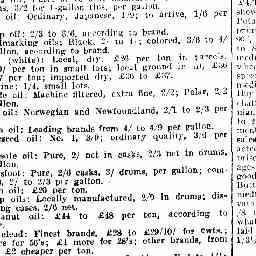 s, 3/2 for 1-gallon tins, per gallon.
oil: Ordinary, Japanese, 1/2; to arrive, 1/6 per
p oil: 2/3 to 3/6, according to brand.
marking oils: Black, to 4; colored, 3/6 to 4/
llon, according to brand.
(white): Local, dry, £36 per ton in parcels.
/ per ton in small lots; local ground in oil,
per ton; imported dry, £36 to £37.
ine: 1/4, small lots.
le oil: Machine filtered, extra fine, 2/2; Polar, 2/2
llon.
oil: Norwegian and Newfoundland, 2/1 to 2/3 per
n.
s oil: Leading brands from 4/ to 4/9 per gallon.
seed oil: No. 1, 3/9; ordinary quality, 3/6 per
n.
sole oil: Pure, 2/ net in casks, 2/3 net in drums.
llon.
sfoot: Pure, 2/8 casks, 3/ drums, per gallon; com-
2/ to 2/3 per gallon.
n oil: £26 per ton.
p oils: Locally manufactured, 2/9 in drums; dis-
ng cases, 2/6 net.
anut oil: £44 to £48 per ton, according to
elead: Finest brands, £28 to £29/10/ for cwts.;
rs for 56's; £1 more for 28's; other brands, from
£2 cheaper per ton.